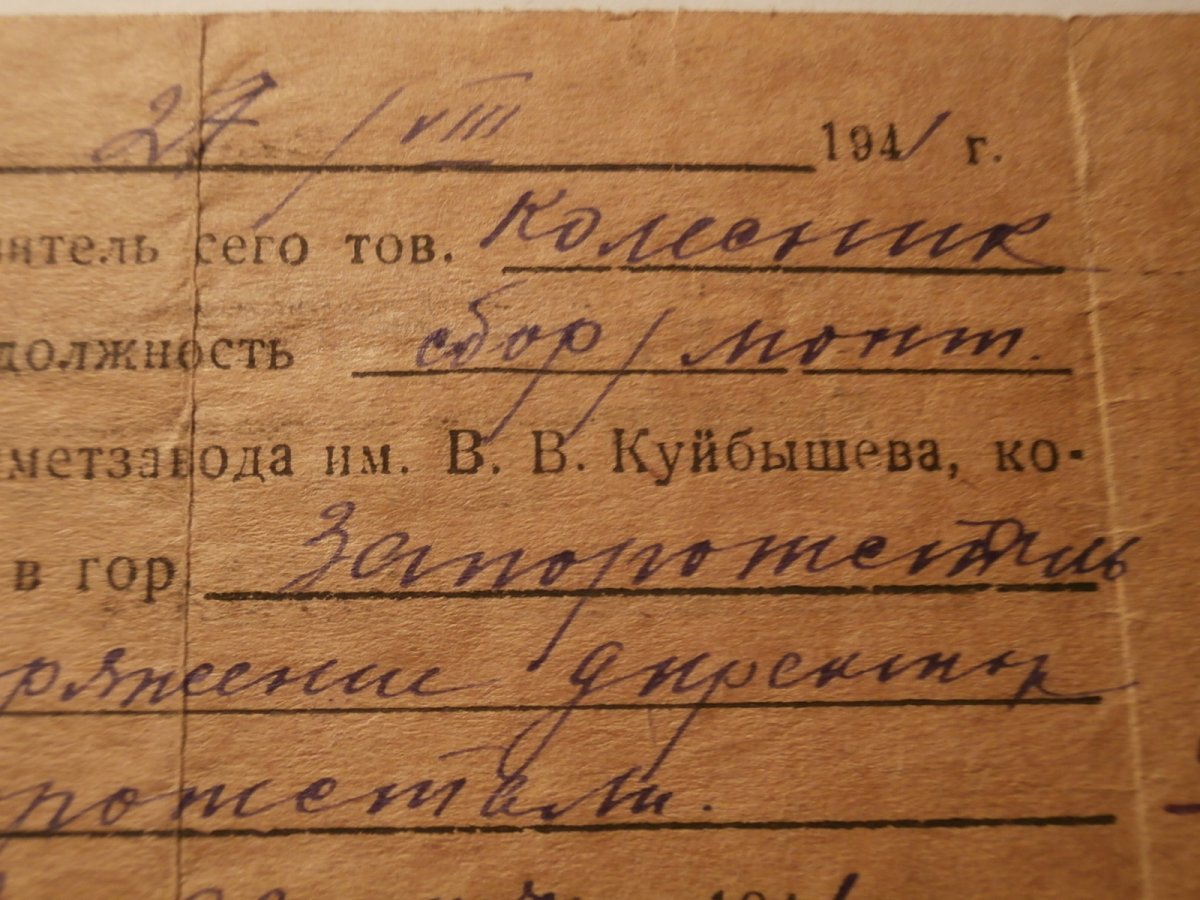 27 / VIII 1941 г.
витель сего тов. Колесник
должность сбор/монт.
метзавода им. В. В. Куйбышева, ко-
в гор Запорожсталь
ряжение директор
рожстали.